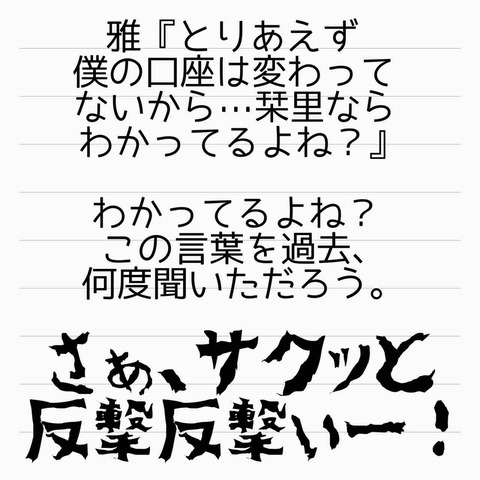 雅『とりあえず
僕の口座は変わって
ないから…栞里なら
わかってるよね？』
わかってるよね？
この言葉を過去、
何度聞いただろう。
さぁ、サクッと
反撃反撃ぃー！